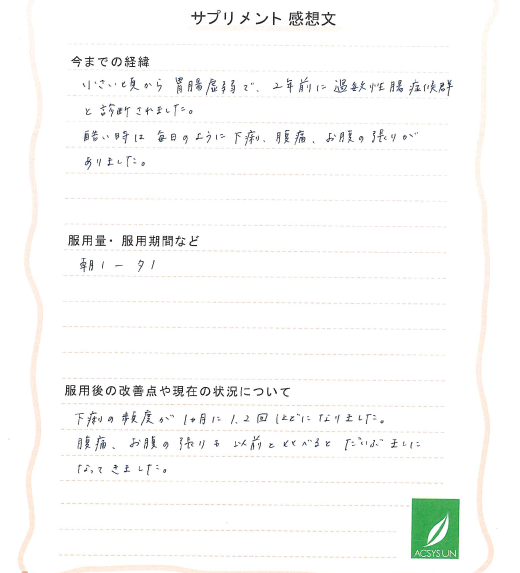 サプリメント 感想文
今までの経緯
小さい頃から 胃腸虚弱で、2年前に 過敏性腸症候群
と診断されました。
酷い時は 毎日のように下痢、腹痛、お腹の張りが
ありました。
服用量・服用期間など
朝1 ー 夕1
服用後の改善点や現在の状況について
下痢の頻度が 1ヶ月に 1.2回 ほどになりました。
腹痛、お腹の張りも 以前と比べると だいぶ ましに
なってきました。
ACSYSUN